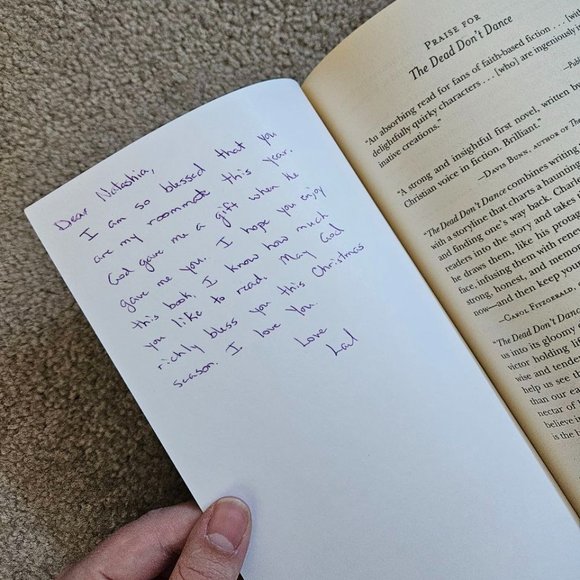 Dear Natashia,
I am so blessed that you
are my roommate this year.
God gave me a gift when he
gave me you. I hope you enjoy
this book, I know how much
you like to read. May God
richly bless you this Christmas
season. I love you.
Love
PRAISE FOR
The Dead Don't Dance
"An absorbing read for fans of faith-based fiction . . . [with
delightfully quirky characters . . . [who] are ingeniously
inative creations."
"A strong and insightful first novel, written by
Christian voice in fiction. Brilliant."
—DAVIS BUNN, AUTHOR OF
"The Dead Don't Dance combines writing
with a storyline that charts a haunting
and finding one's way back. Charles
readers into the story and takes
he draws them, like his protag
face, infusing them with
strong, honest, and
now—and then keep you
—CAROL FITZGERALD,
"The Dead Don't Dance
us into its gloomy
victor holding life
wise and
help us see th
than our ea
nectar of
believe i
is the b